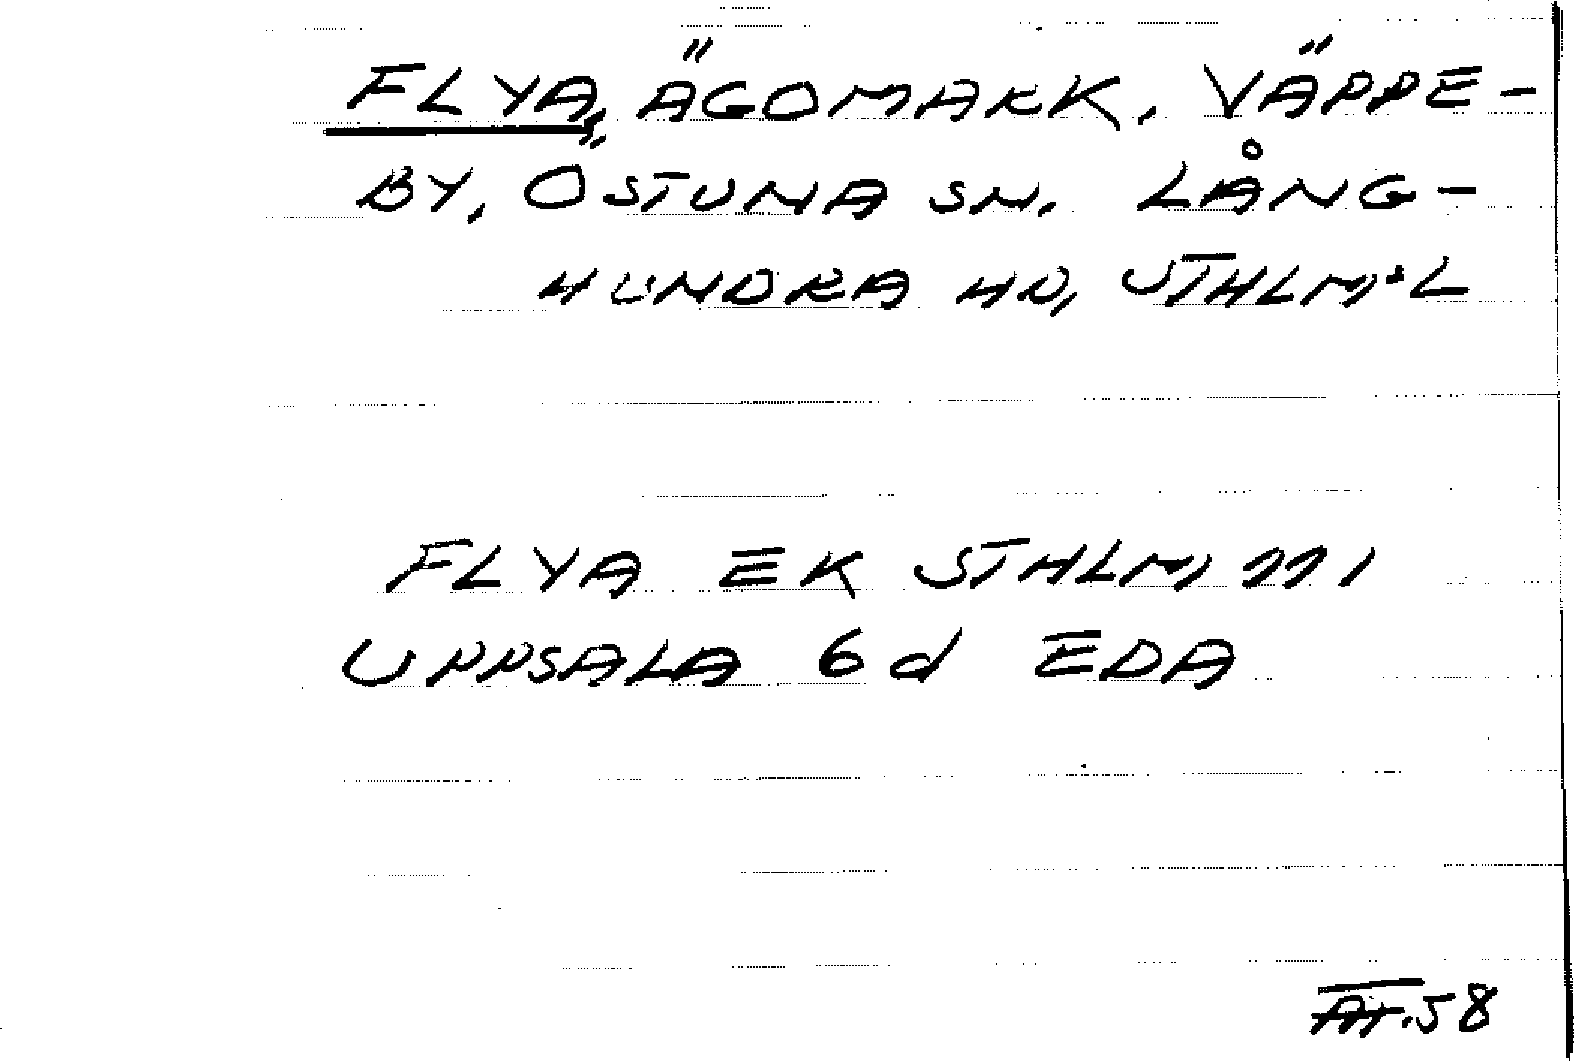 FLYA, ÄGOMARK, VÄPPE-
BY, ÖSTUNA SN, LÅNG-
HUNDRA HD, STHLM:L
FLYA EK STHLM 221
UPPSALA 6d EDA
58